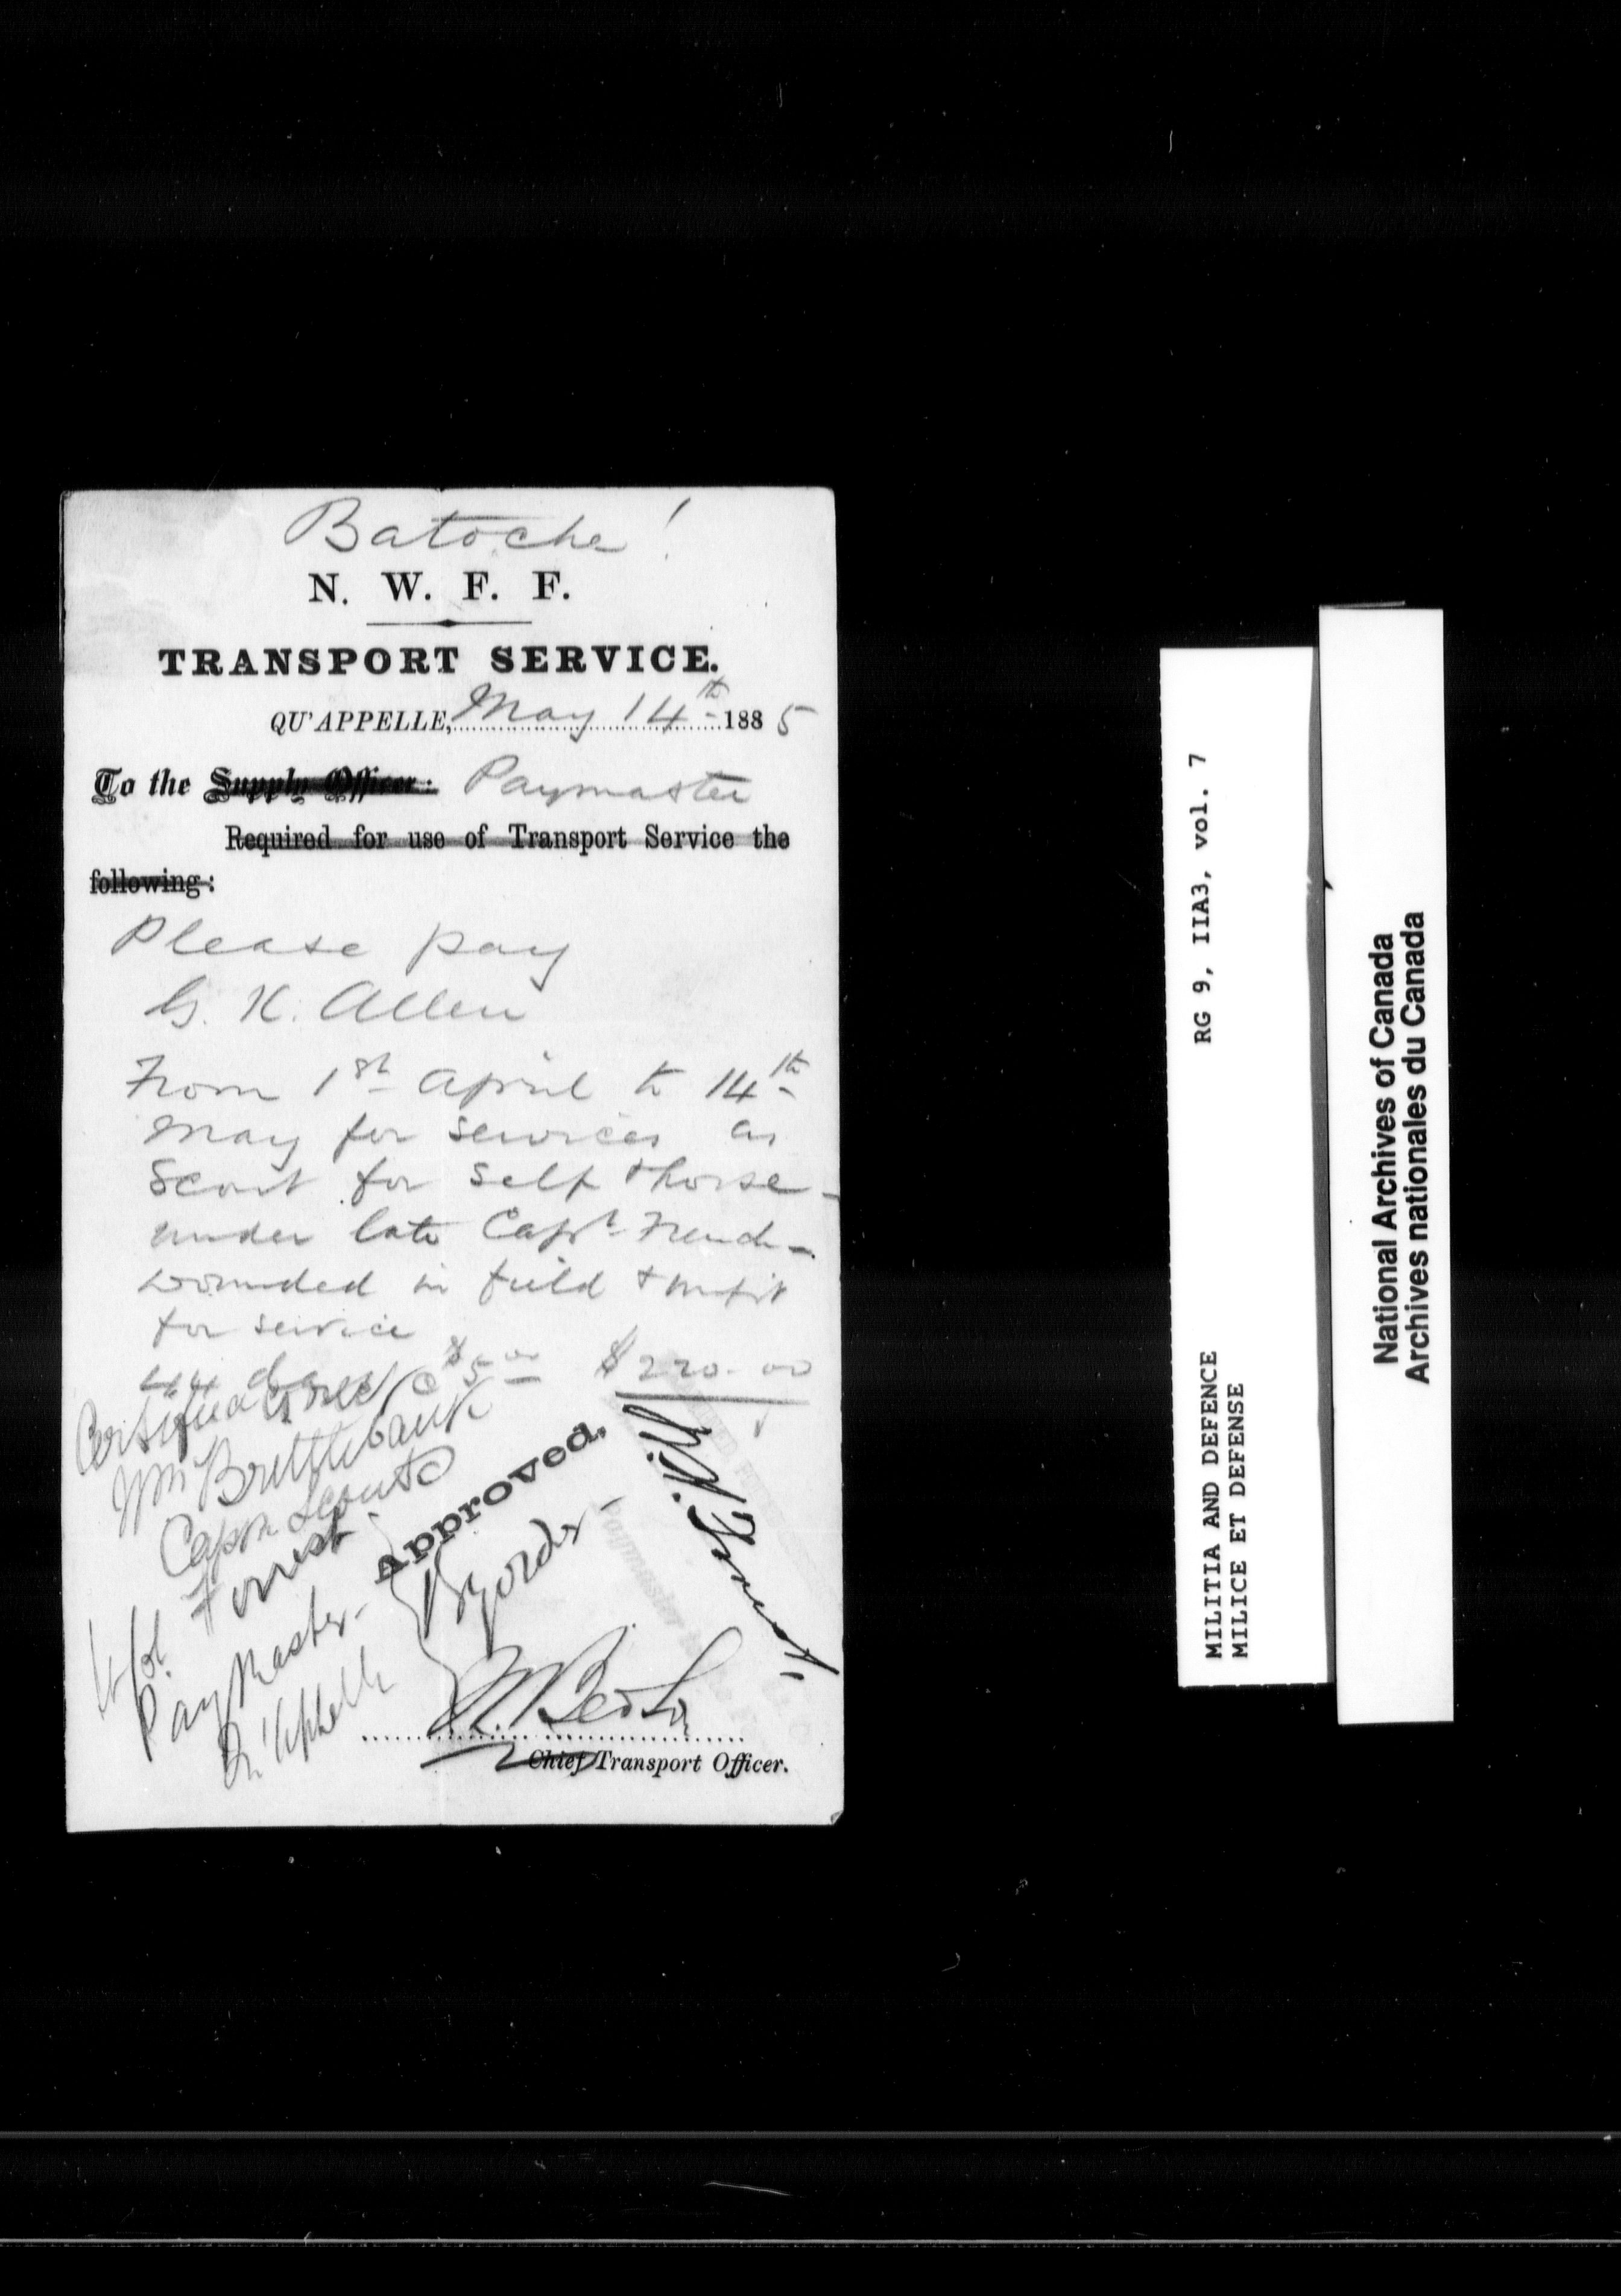 Batoche!
N. W. F. F.
TRANSPORT SERVICE.
QU'APPELLE, May 14th 1885
To the Supply Officer: Paymaster
Required for use of Transport Service the
following:
Please pay
G. K. Allen
From 1st April to 14th
May for services as
Scout for self & horse
under late Capt French
wounded in field & unfit
for service
44 days @ $5.00 $220.00
Certified
Wm Brittlebank
Capn Scouts
Approved.
By order
Lt Col. Forrest
Pay Master
Qu'Appelle
Chief Transport Officer.
Paymaster
RG 9, IIA3, vol. 7
MILITIA AND DEFENCE
MILICE ET DEFENSE
National Archives of Canada
Archives nationales du Canada